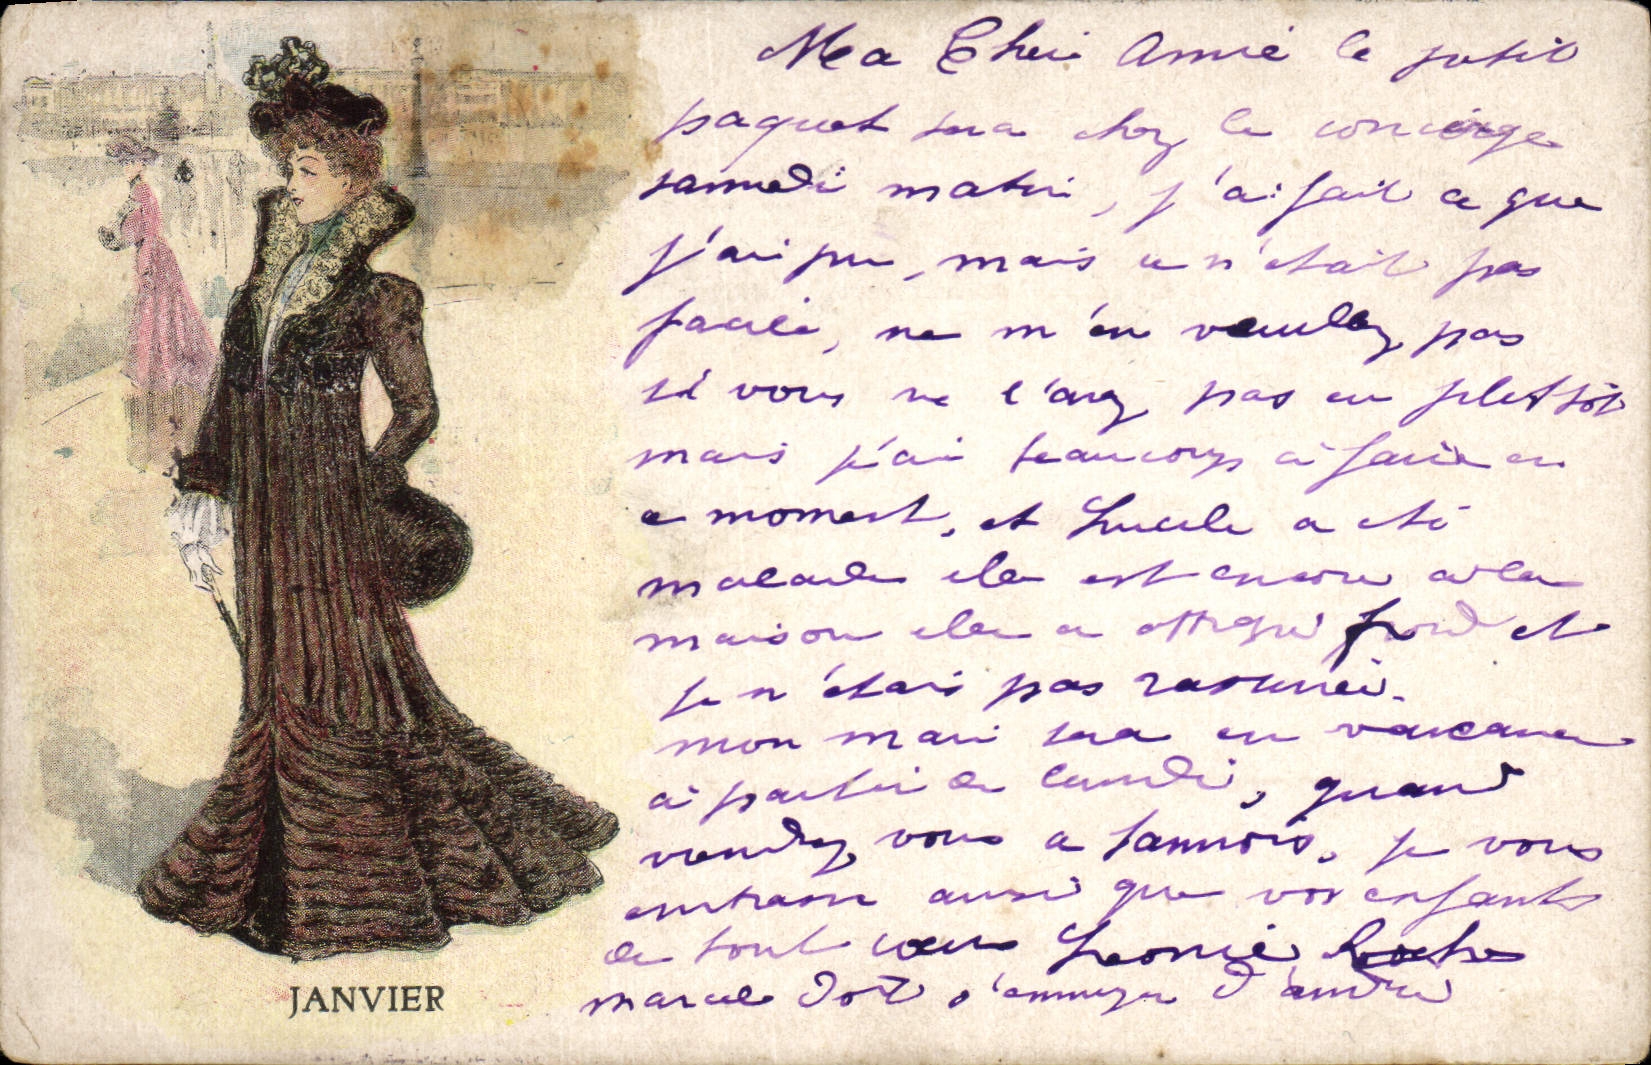 Ma Cheri Annie le petit
paquet sera chez le concierge
samedi matin, j'ai fait ce que
j'ai pu, mais ce n'etait pas
facile, ne m'en veuillez pas
si vous ne l'avez pas eu plustôt
mais j'ai beaucoup à faire en
ce moment, et Lucile a eté
malade elle est encore à la
maison elle a attrapé froid et
je n'étais pas rassurée.
mon mari sera en vacance
à partir de lundi, quand
viendrez vous a Sannois, je vous
embrasse ainsi que vos enfants
de tout cœur Léonie
marcel doit s'ennuyer d'andré
JANVIER